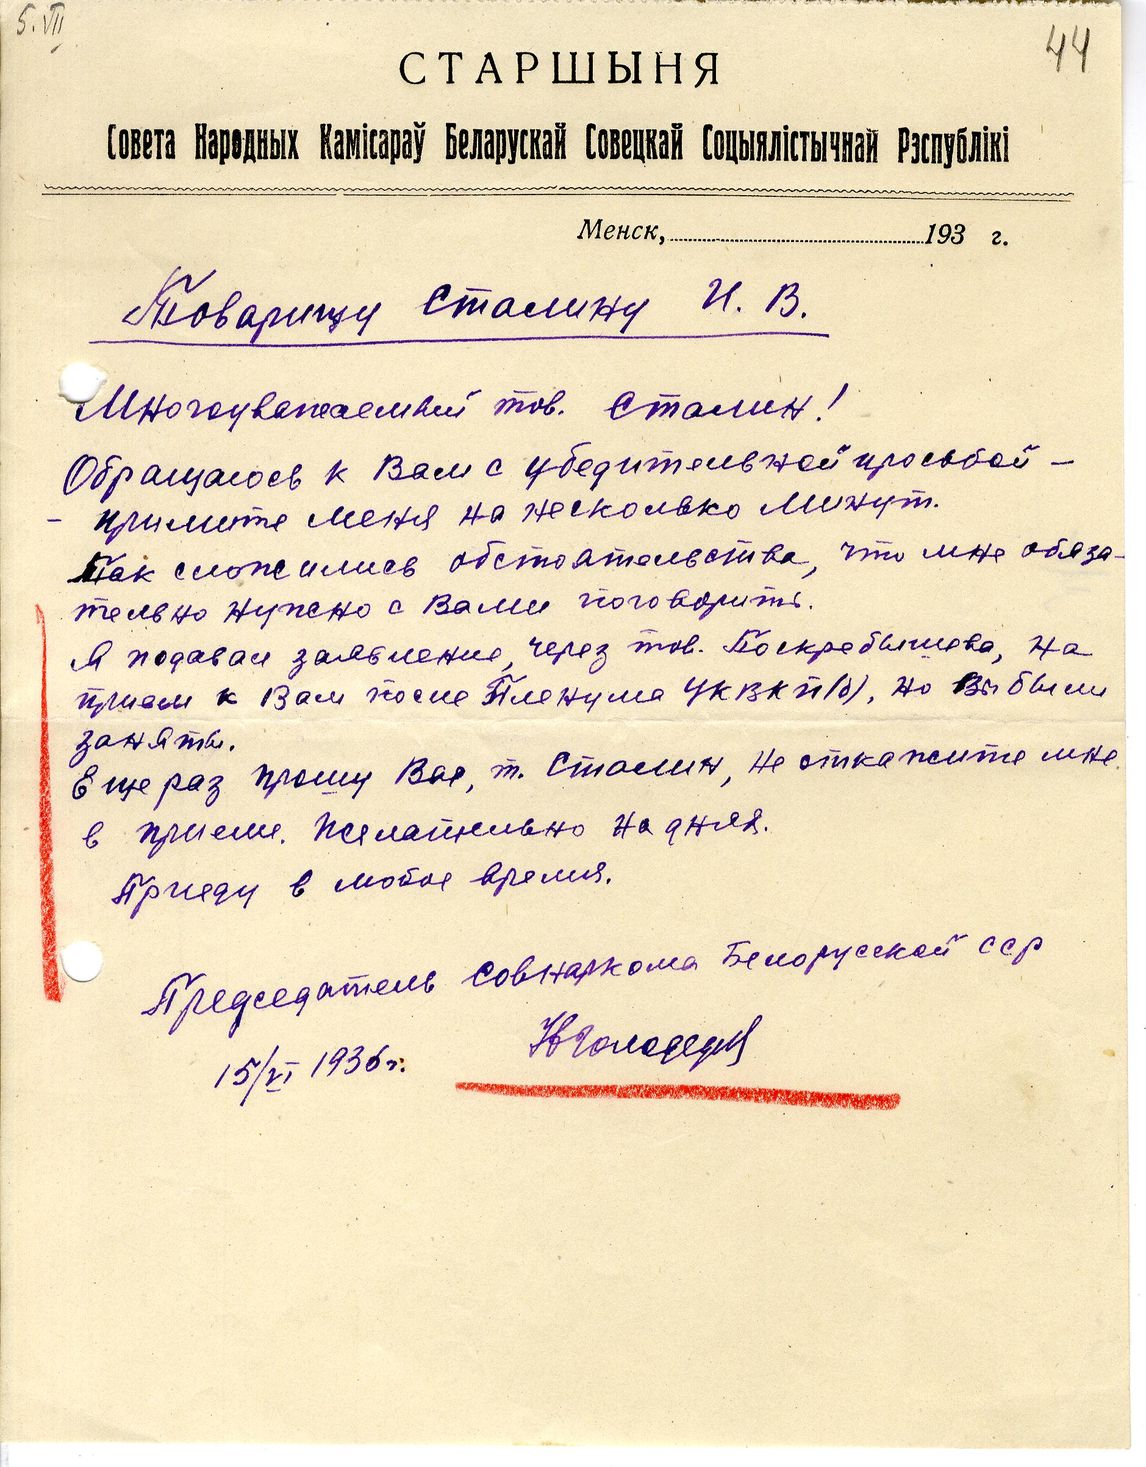 5.VII
44
СТАРШЫНЯ
Совета Народных Камісараў Беларускай Совецкай Соцыялістычнай Рэспублікі
Менск, 193 г.
Товарищу Сталину И. В.
Многоуважаемый тов. Сталин!
Обращаюсь к Вам с убедительной просьбой –
– примите меня на несколько минут.
Так сложились обстоятельства, что мне обяза-
тельно нужно с Вами поговорить.
Я подавал заявление, через тов. Поскребышева, на
прием к Вам после Пленума ЦК ВКП(б), но Вы были
заняты.
Еще раз прошу Вас, т. Сталин, не откажите мне
в приеме. Желательно на днях.
Приеду в любое время.
Председатель Совнаркома Белорусской ССР
Н Голодед
15/VI 1936 г.